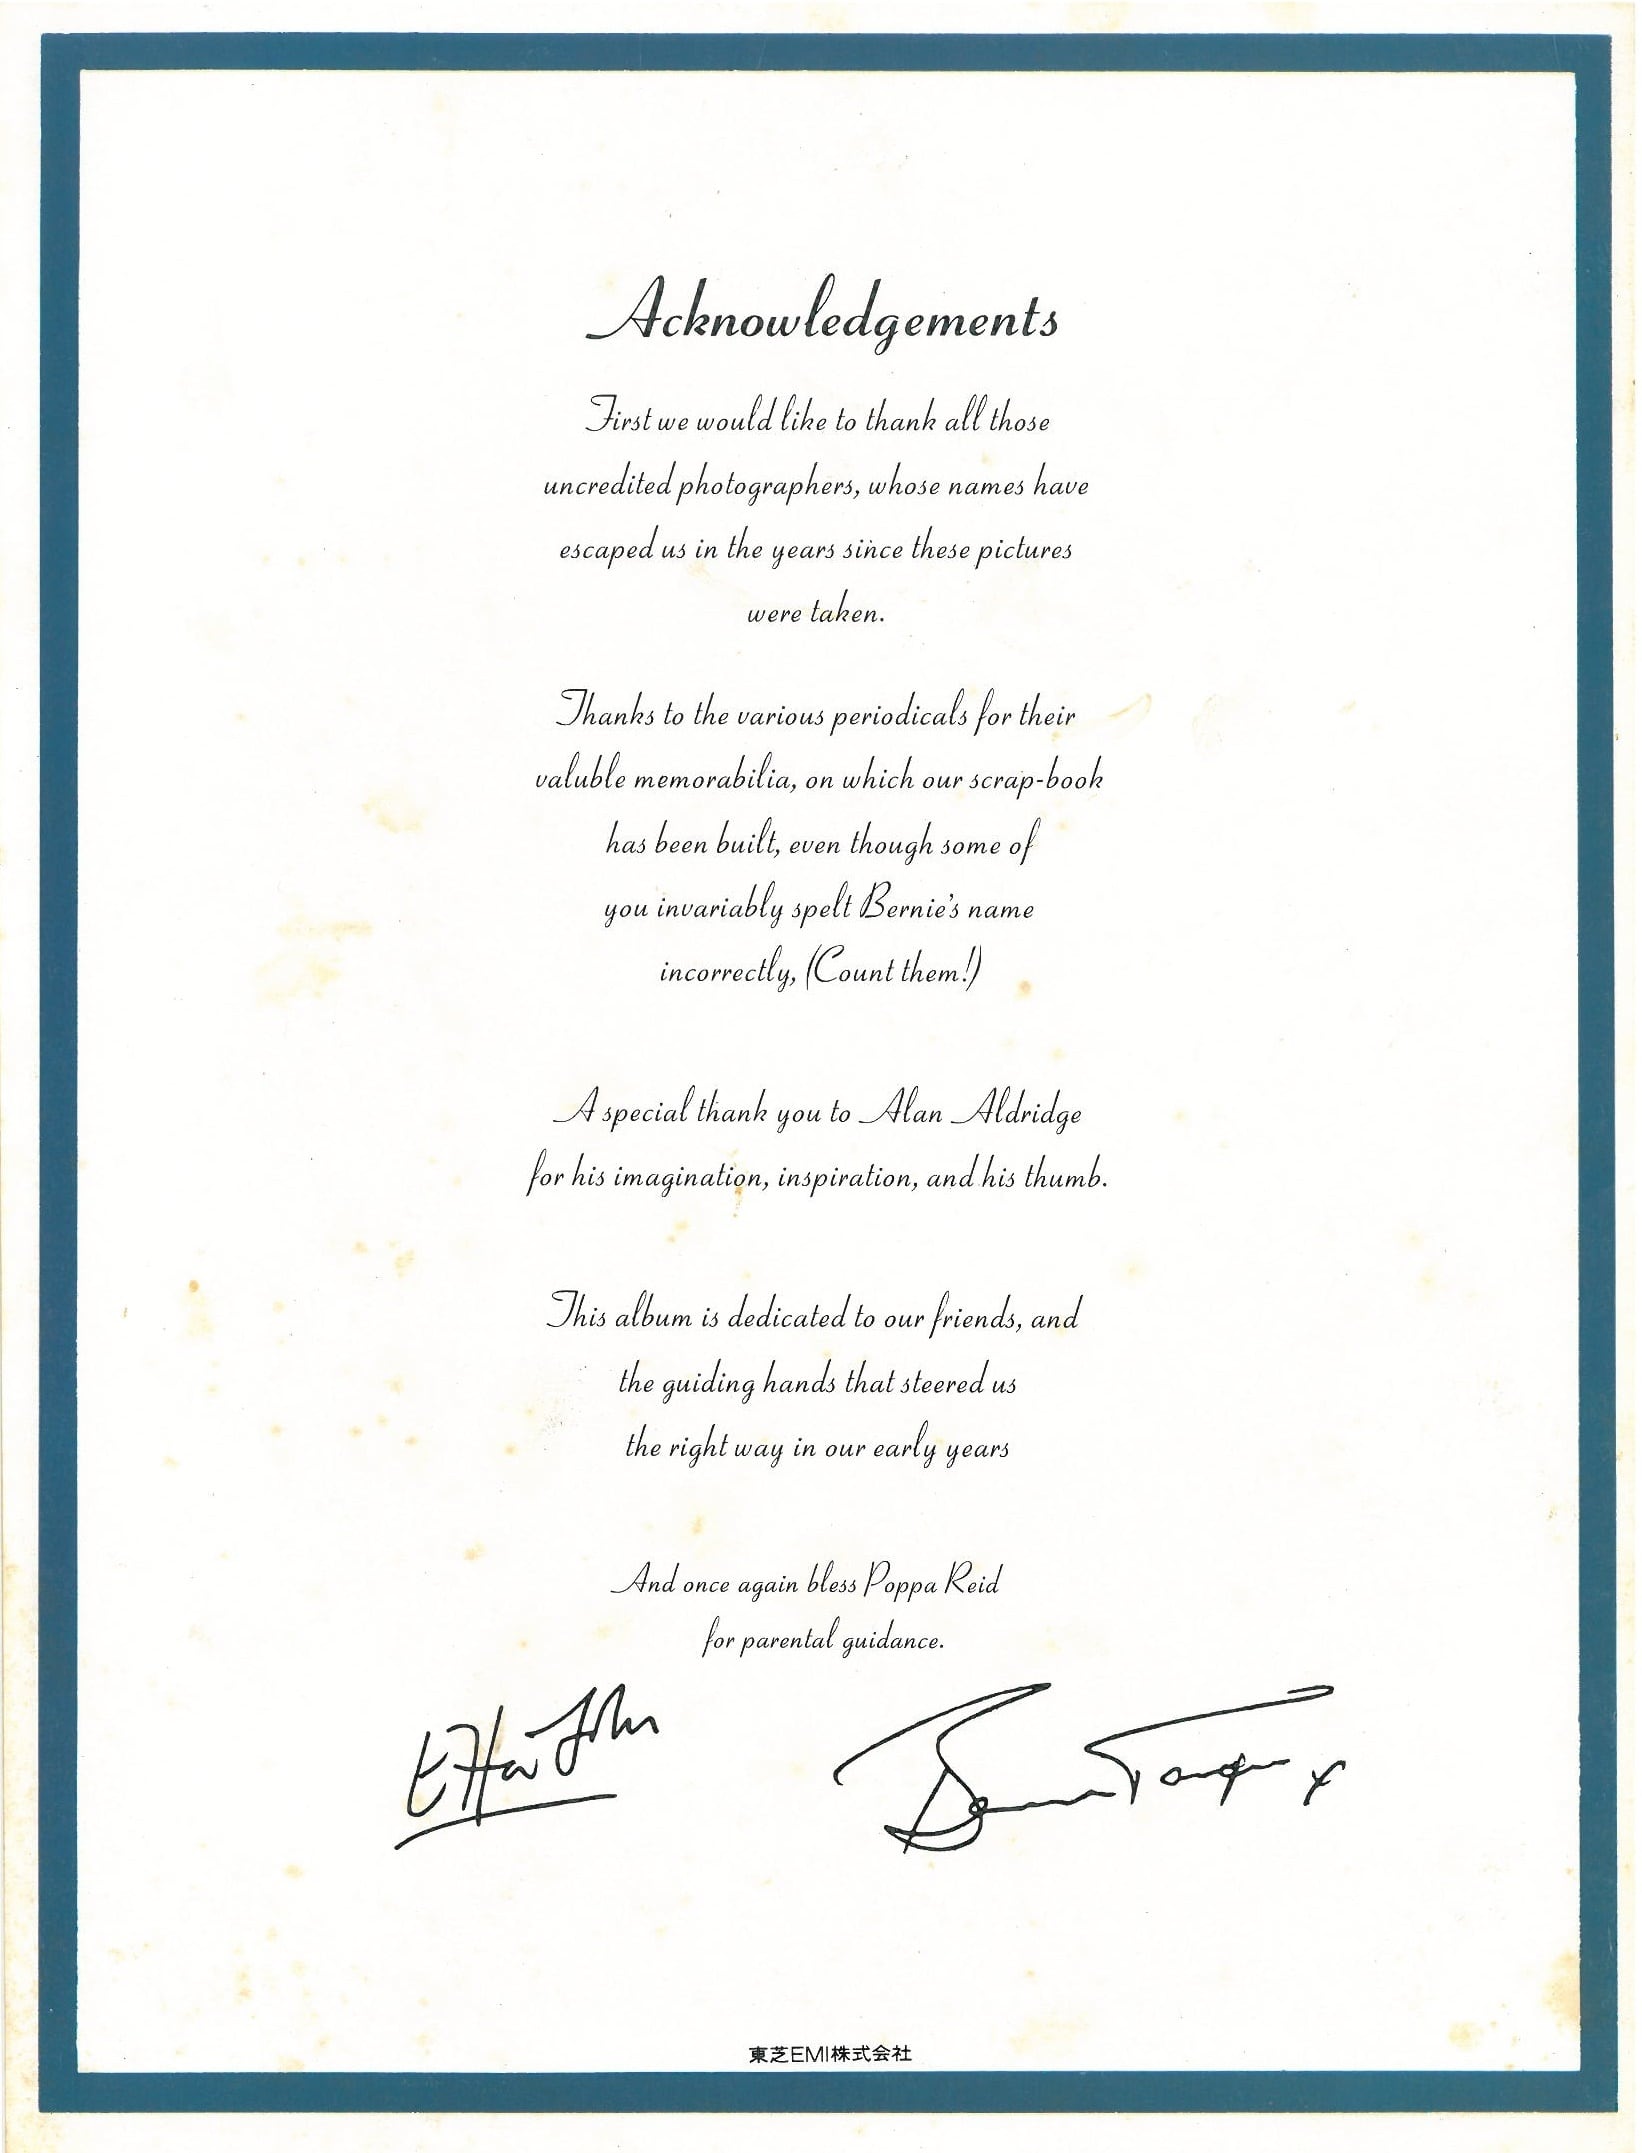 Acknowledgements
First we would like to thank all those
uncredited photographers, whose names have
escaped us in the years since these pictures
were taken.
Thanks to the various periodicals for their
valuble memorabilia, on which our scrap-book
has been built, even though some of
you invariably spelt Bernie's name
incorrectly, (Count them!)
A special thank you to Alan Aldridge
for his imagination, inspiration, and his thumb.
This album is dedicated to our friends, and
the guiding hands that steered us
the right way in our early years
And once again bless Poppa Reid
for parental guidance.
Elton John
Bernie Taupin x
東芝EMI株式会社